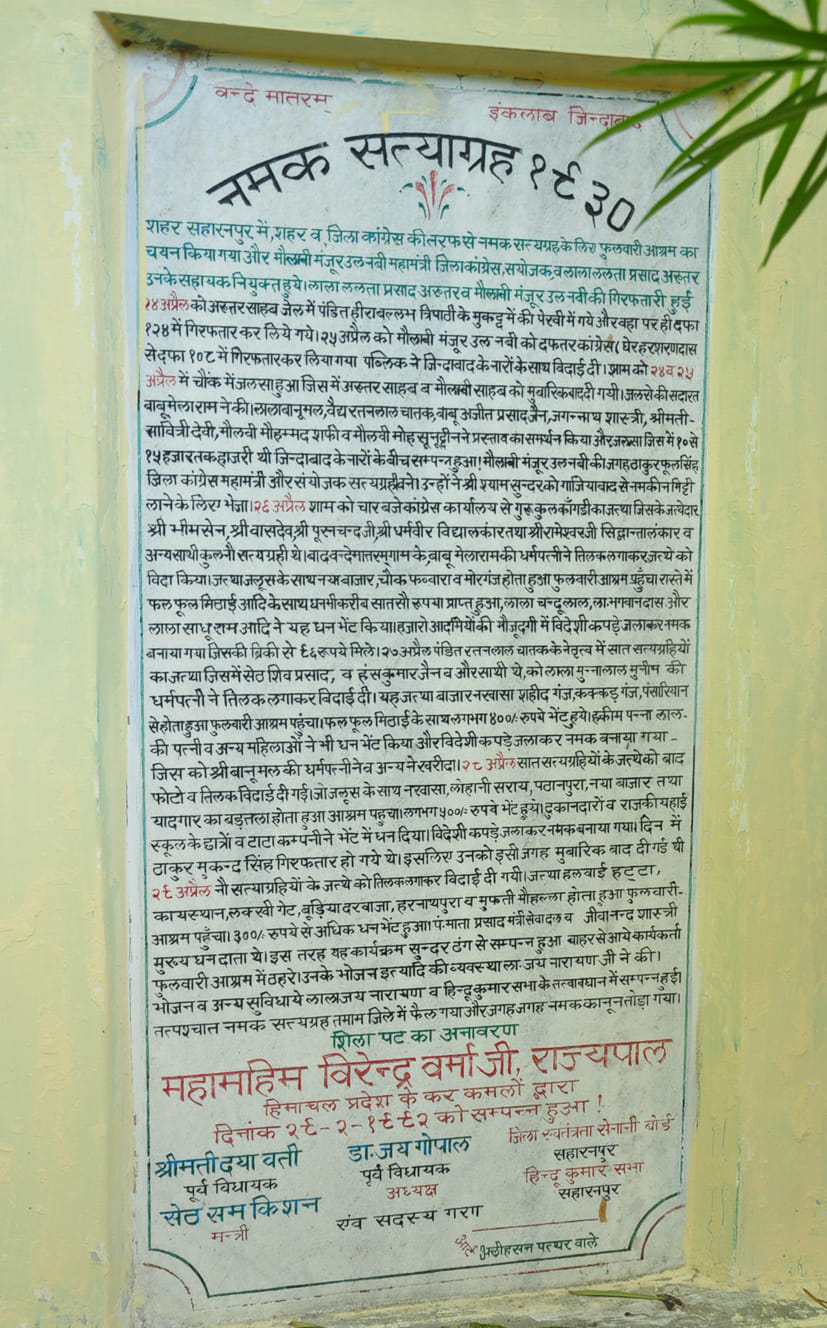 वन्दे मातरम्
इंकलाब जिन्दाबाद
नमक सत्याग्रह १९३०
शहर सहारनपुर में, शहर व जिला कांग्रेस की तरफ से नमक सत्यग्रह के लिए फुलवारी आश्रम का
चयन किया गया और मौलाबी मंजूर उल नबी महामंत्री जिला कांग्रेस, सयोजक, व लाला ललता प्रसाद अख्तर
उनके सहायक नियुक्त हुये। लाला ललता प्रसाद अख्तर व मौलाबी मंजूर उल नबी की गिरफतारी हुई
२४ अप्रैल को अख्तर साहब जेल में पंडित हीराबल्लभ त्रिपाठी के मुकद्दमें की पेरवी में गये और वहा पर ही दफा
१२४ में गिरफतार कर लिये गये। २५ अप्रैल को मौलाबी मंजूर उल नबी को दफतर कांग्रेस (घेर हरशरणदास
से दफा १०८ में गिरफतार कर लिया गया पब्लिक ने जिन्दाबाद के नारों के साथ विदाई दी। शाम को २४ व २५
अप्रैल में चौंक में जलसा हुआ जिस में अख्तर साहब व मौलाबी साहब को मुबारिकबाद दी गयी। जलसे की सदारत
बाबू मेला राम ने की। लाला बानूमल, वैद्य रतनलाल चातक, बाबू अजीत प्रसाद जैन, जगन्नाथ शास्त्री, श्रीमती-
सावित्री देवी, मौलवी मौहम्मद शफी व मौलवी मोह सुनूद्दीन ने प्रस्ताव का समर्थन किया और जलसा जिस में १० से
१५ हजार तक हाजरी थी जिन्दाबाद के नारों के बीच सम्पन्न हुआ! मौलाबी मंजूर उल नबी की जगह ठाकुर फूल सिंह
जिला कांग्रेस महामंत्री और संयोजक सत्यग्रह बने। उन्होंने श्री श्याम सुन्दर को गाजियाबाद से नमकीन मिट्टी
लाने के लिए भेजा। २६ अप्रैल शाम को चार बजे कांग्रेस कार्यालय से गुरूकुल काँगडी का जत्था जिसके जत्थेदार
श्री भीमसेन, श्री वासदेव, श्री पूरनचन्द जी, श्री धर्मवीर विद्यालंकार तथा श्री रामेश्वर जी सिद्वान्तालंकार व
अन्य साथी कुल नौ सत्यग्रही थे। बाद वन्देमातरम् गान के, बाबू मेलाराम की धर्मपत्नी ने तिलक लगाकर जत्थे को
विदा किया। जत्था जलूस के साथ नया बाजार, चौक फव्वारा व मोरगंज होता हुआ फुलवारी आश्रम पहुँचा रास्ते में
फल फूल मिठाई आदि के साथ धन भी करीब सात सौ रूपया प्राप्त हुआ, लाला चन्दूलाल, ला. भगवानदास और
लाला साधूराम आदि ने यह धन भेंट किया। हजारो आदमियों की मौजूदगी में विदेशी कपड़े जलाकर नमक
बनाया गया जिसकी ब्रिकी से ९६ रूपये मिले। २७ अप्रैल पंडित रतनलाल चातक के नेतृत्व में सात सत्यग्रहियों
का जत्था जिसमें सेठ शिव प्रसाद, व हंसकुमार जैन व और साथी थे, को लाला मुन्नालाल मुनीम की
धर्मपत्नी ने तिलक लगाकर विदाई दी। यह जत्था बाजार नखासा शहीद गंज, कक्कड़ गंज, पंसारियान
से होता हुआ फुलवारी आश्रम पहुंचा। फल फूल मिठाई के साथ लगभग ४००/- रूपये भेंट हुये। हकीम पन्ना लाल-
की पत्नी व अन्य महिलाओं ने भी धन भेंट किया और विदेशी कपड़े जलाकर नमक बनाया गया -
जिस को श्री बानूमल की धर्मपत्नी ने व अन्य ने खरीदा। २८ अप्रैल सात सत्यग्रहियों के जत्थे को बाद
फोटो व तिलक विदाई दी गई। जो जलूस के साथ नखासा, लोहानी सराय, पठानपुरा, नया बाजार तथा
यादगार का बड़तला होता हुआ आश्रम पहुचा। लगभग ५००/- रूपये भेंट हुये। दुकानदारों व राजकीय हाई
स्कूल के छात्रों व टाटा कम्पनी ने भेंट में धन दिया। विदेशी कपड़े जलाकर नमक बनाया गया। दिन में
ठाकुर मुकन्द सिंह गिरफतार हो गये थे। इसलिए उनको इसी जगह मुबारिक बाद दी गई थी
२९ अप्रैल नौ सत्याग्रहियों के जत्थे को तिलक लगाकर विदाई दी गयी। जत्था हलवाई हट्टा,
कायस्थान, लक्खी गेट, बूड़िया दरवाजा, हरनाथपुरा व मुफती मौहल्ला होता हुआ फुलवारी-
आश्रम पहुँचा। ३००/- रूपये से अधिक धन भेंट हुआ। पं. माता प्रसाद मंत्री सेवादल व जीवानन्द शास्त्री
मुख्य धन दाता थे। इस तरह यह कार्यक्रम सुन्दर ढंग से सम्पन्न हुआ बाहर से आये कार्यकर्ता
फुलवारी आश्रम में ठहरे। उनके भोजन इत्यादि की व्यवस्था ला. जय नारायण जी ने की।
भोजन व अन्य सुविधाये लाला जय नारायण व हिन्दू कुमार सभा के तत्वावधान में सम्पन्न हुई।
तत्पश्चात नमक सत्यग्रह तमाम जिले में फैल गया और जगह जगह नमक कानून तोड़ा गया।
शिला पट का अनावरण
महामहिम विरेन्द्र वर्मा जी, राज्यपाल
हिमाचल प्रदेश के कर कमलों द्वारा
दिनांक २९-२-१९९२ को सम्पन्न हुआ !
श्रीमती दया वती डा. जय गोपाल जिला स्वतंत्रता सेनानी बोर्ड
पूर्व विधायक पूर्व विधायक सहारनपुर
अध्यक्ष हिन्दू कुमार सभा
सेठ राम किशन एंव सदस्य गण सहारनपुर
मन्त्री
अलीहसन पत्थर वाले